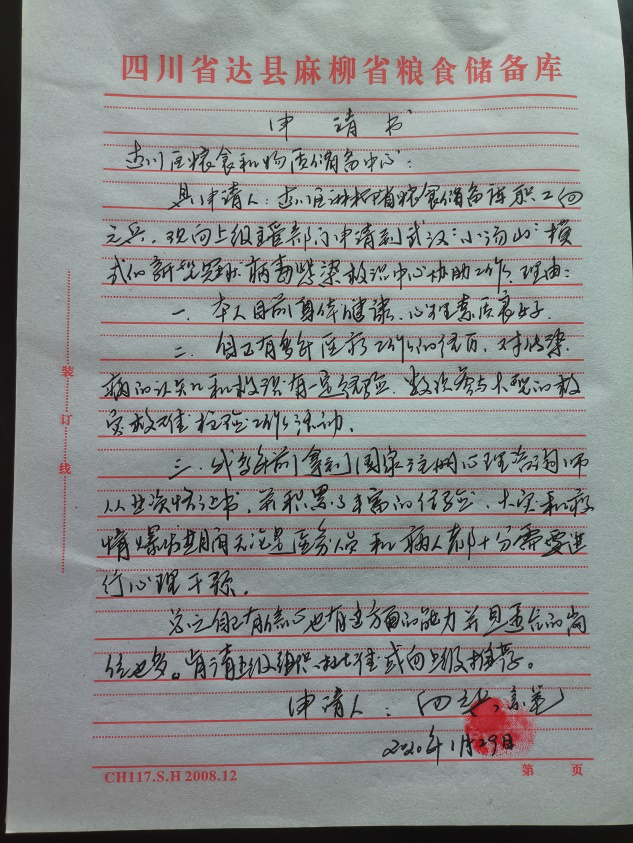 四川省达县麻柳省粮食储备库
申请书
达川区粮食和物质储备中心:
具申请人:达川区麻柳省粮食储备库职工向
之兵,现向上级主管部门申请到武汉"小汤山"模
式的新型冠状病毒感染救治中心协助工作,理由:
一、本人目前身体健康,心理素质良好。
二、自己有多年医疗工作的经历,对传染
病的认知和救治有一定经验,数次参与大规的救
灾救难检验工作活动。
三、我多年前拿到国家注册心理咨询师
从业资格证书,并积累了丰富的经验,大灾和疫
情爆发期间无论是医务人员和病人都十分需要进
行心理干预。
总之自己有信心也有这方面的能力并且适合的岗
位也多。肯请上级组织批准或向上级推荐。
申请人:
2020年1月29日
装
订
线
CH117.S.H 2008.12
第 页